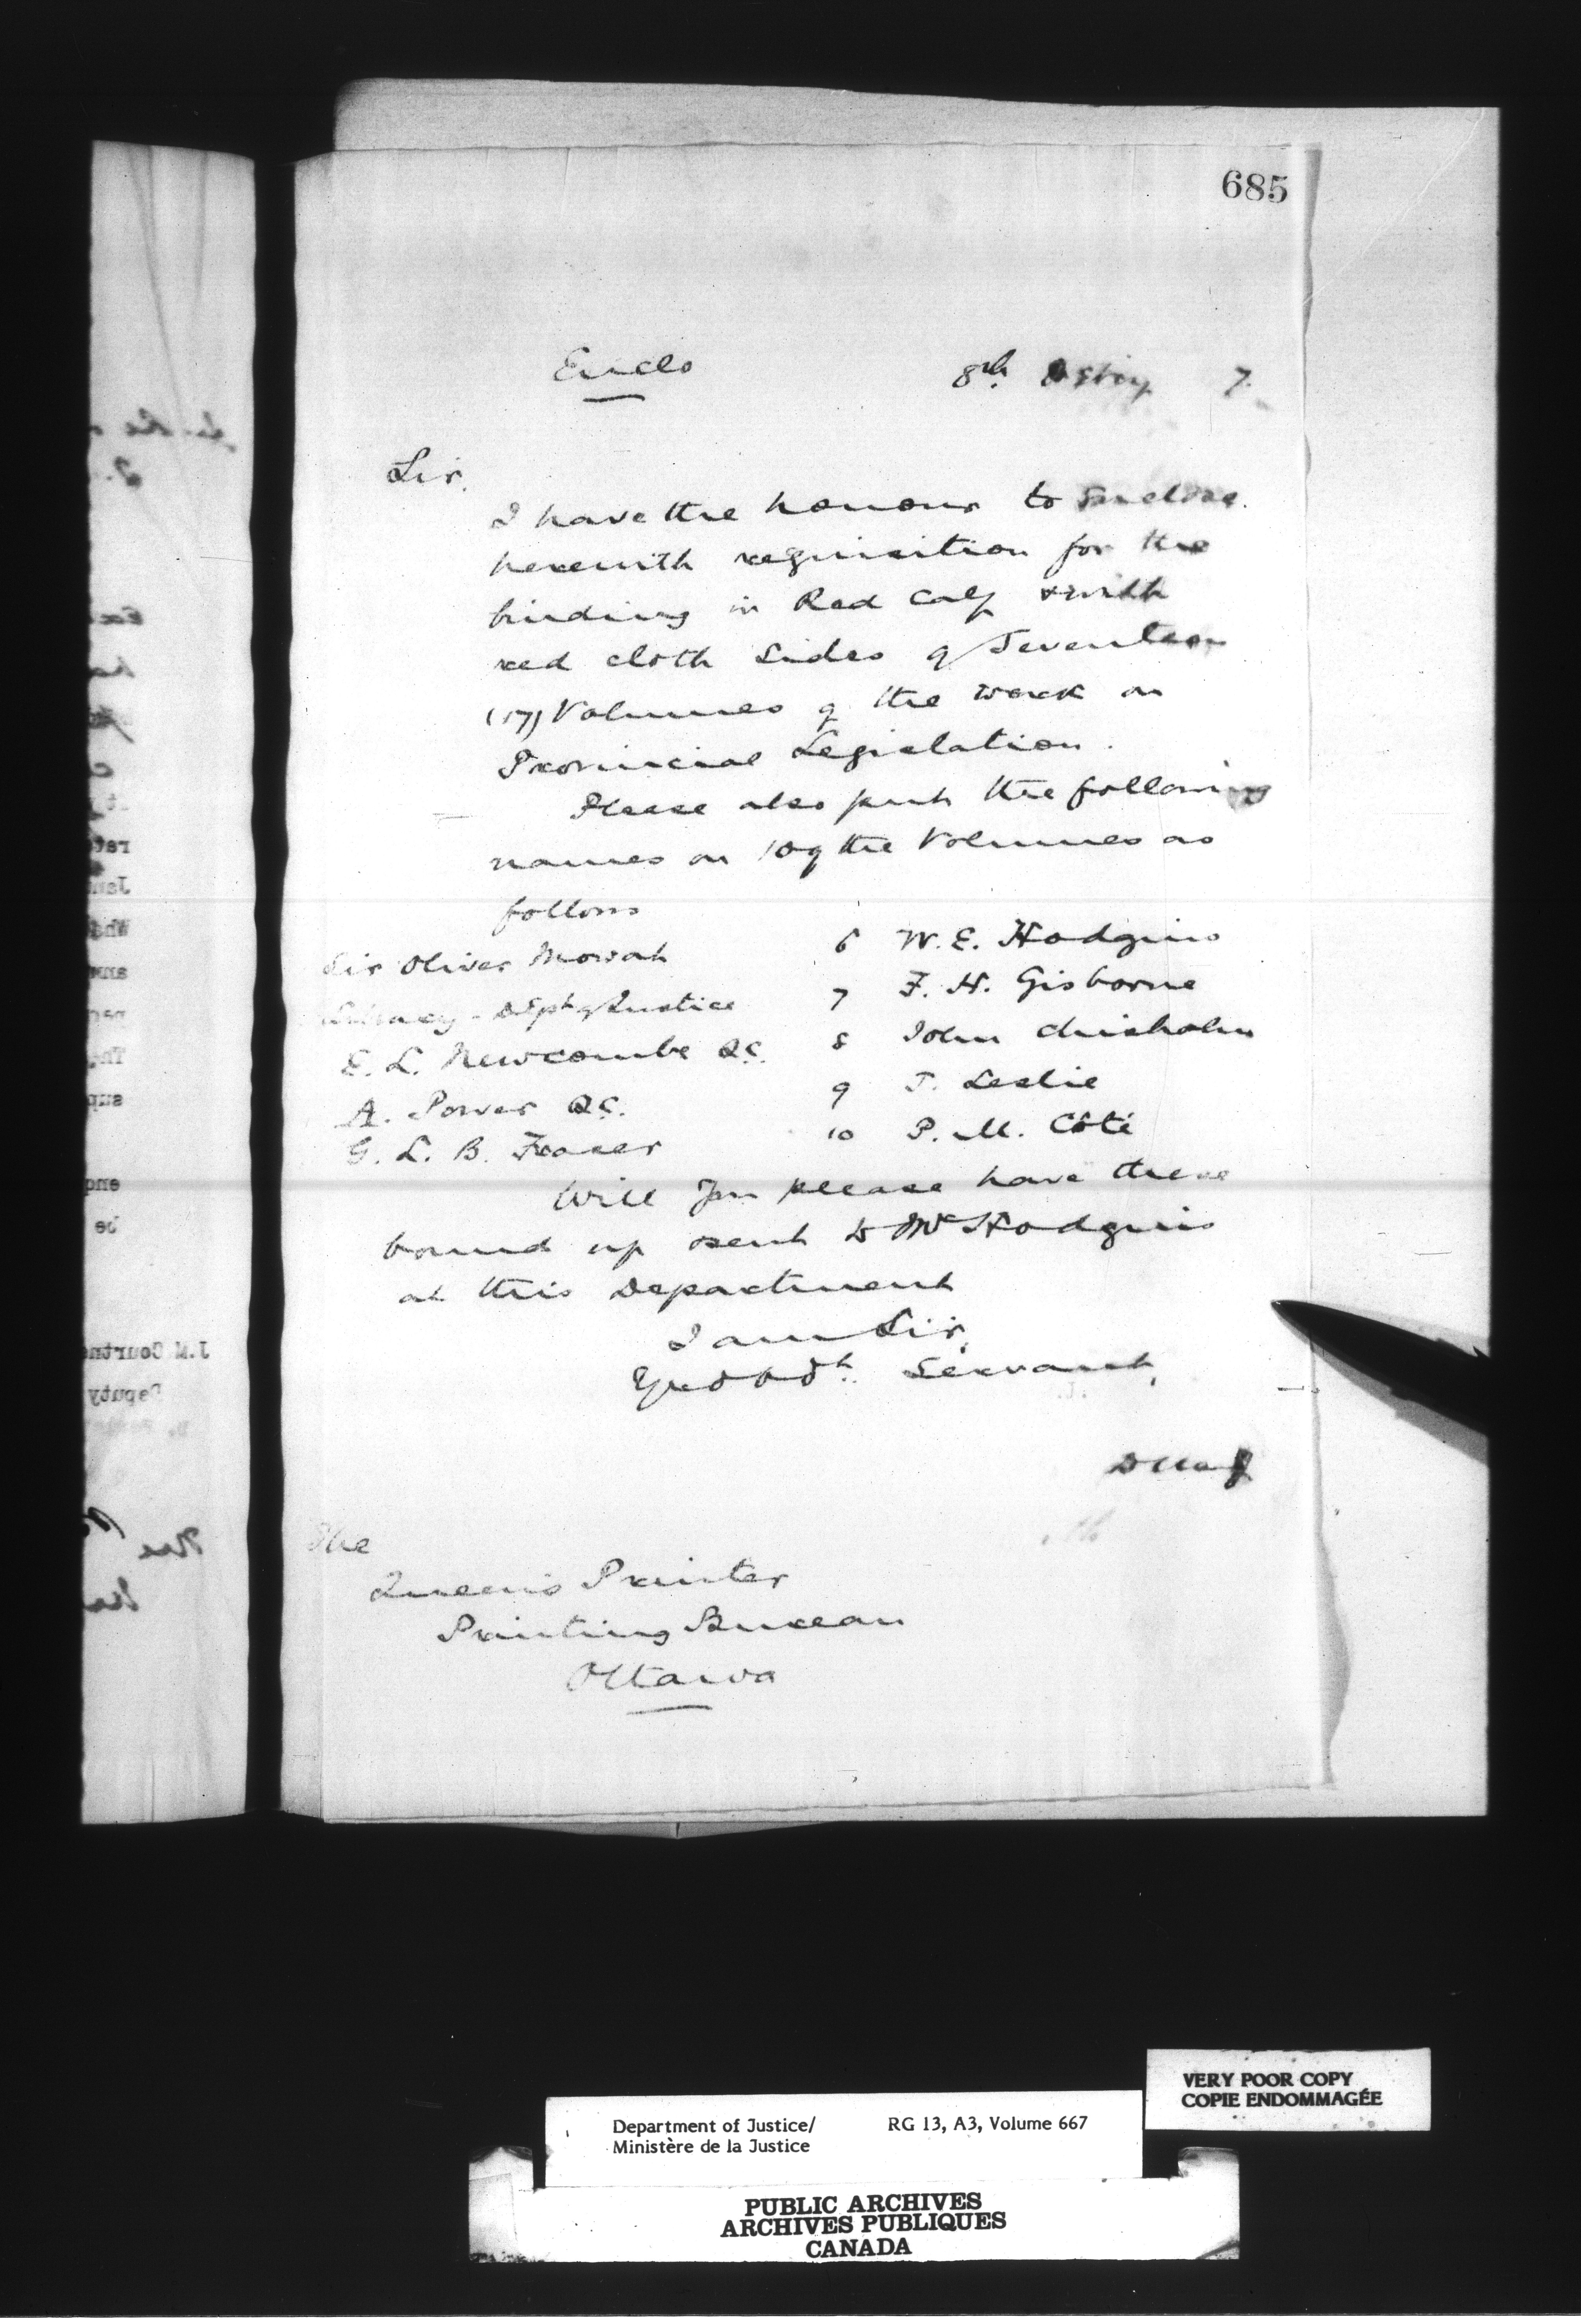 685
Enclo
8th 7.
Sir,
I have the honour to enclose
herewith requisition for the
binding in Red Calf & with
red cloth sides of Seventeen
(17) Volumes of the work on
Provincial Legislation.
Please also put the following
names on 10 of the Volumes as
follows
Sir Oliver Mowat
Library - Dept of Justice
E. L. Newcombe Q.C.
A. Power Q.C.
G. L. B. Fraser
6 W. E. Hodgins
7 F. H. Gisborne
8 John Chisholm
9 J. Leslie
10 P. M. Côté
Will you please have these
bound up & sent to Mr Hodgins
at this Department
I am Sir,
Yr obdt. Servant,
The
Queen's Printer
Printing Bureau
Ottawa
J.M Courtn
Deputy
VERY POOR COPY
COPIE ENDOMMAGÉE
Department of Justice/
Ministère de la Justice
RG 13, A3, Volume 667
PUBLIC ARCHIVES
ARCHIVES PUBLIQUES
CANADA